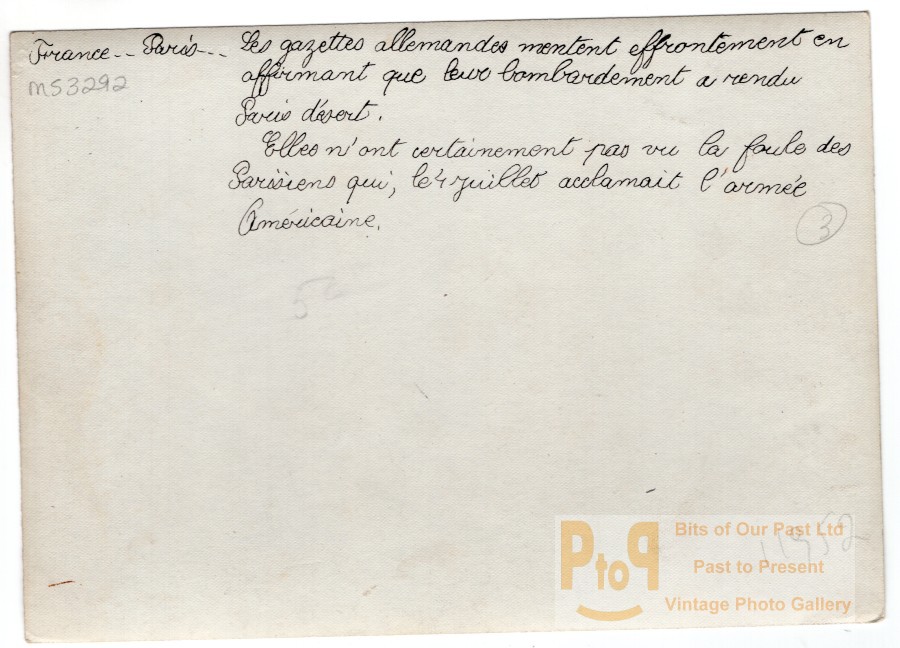 France -- Paris -- Les gazettes allemandes mentent effrontement en
MS3292
affirmant que leur bombardement a rendu
Paris désert.
Elles n'ont certainement pas vu la foule des
Parisiens qui, le 4 juillet acclamait l'armée
Américaine.
3
PtoP
Bits of Our Past Ltd
Past to Present
Vintage Photo Gallery